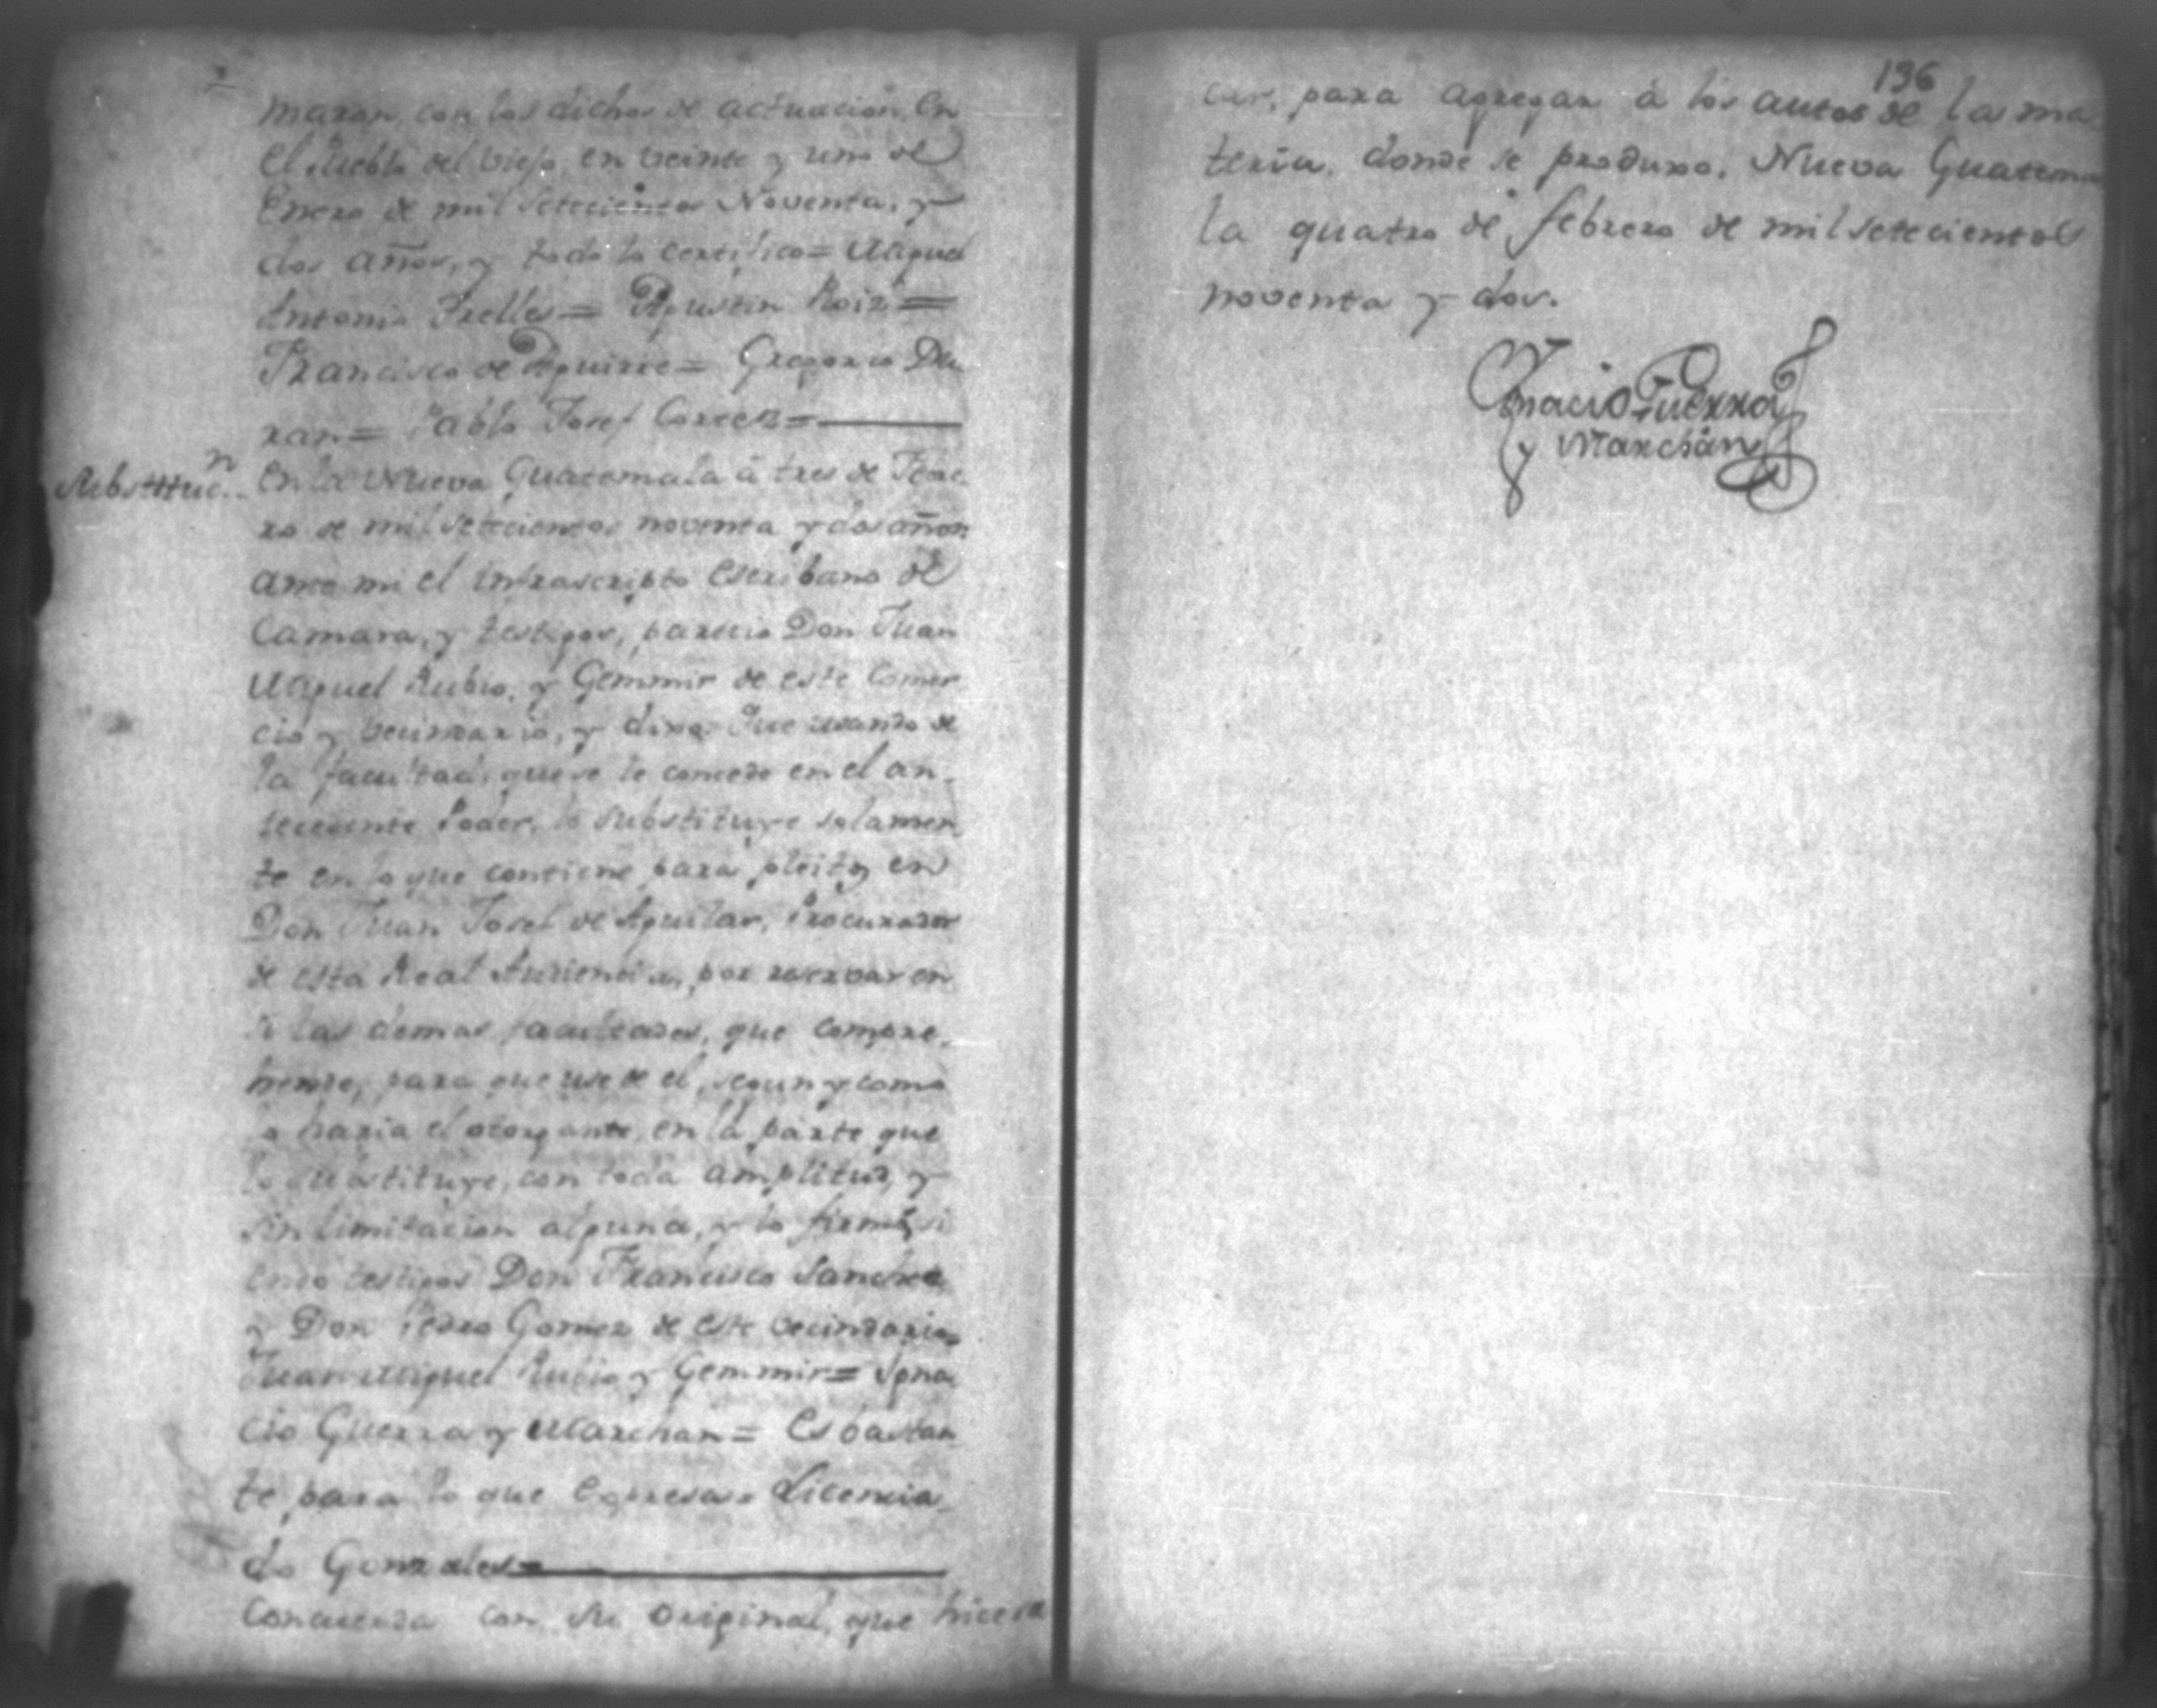 maron, con los dichos de actuacion. En
el Pueblo del Viejo, en veinte y uno de
Enero de mil setecientos Noventa, y
dos años, y todo lo certifico = Miguel
Antonio Frelles = Agustin Roiz =
Francisco de Aguirre = Gregorio Du
ran = Pablo Josef Cortez =
Substituc.n
En la Nueva Guatemala à tres de Febre
ro de mil setecientos noventa y dos años
ante mi el infrascripto Escribano de
Camara, y testigos, parecio Don Juan
Miguel Rubio, y Gemmir de este Comer
cio y vecindario, y dixo: Que usando de
la facultad, que se le concede en el an-
tecedente Poder, lo substituye solamen
te en lo que contiene para pleitos en
Don Juan Josef de Aguilar, Procurador
de esta Real Audiencia, por reservar en
si las demas facultades, que compre-
hende, para que use de el, segun y como
lo haria el otorgante, en la parte que
lo substituye, con toda amplitud, y
sin limitacion alguna, y lo firmó, si
endo testigos Don Francisco Sanchez,
y Don Pedro Gomez de este vecindario =
Juan Miguel Rubio y Gemmir = Igna
cio Guerra y Marchan = Es bastan
te para lo que expresa = Licencia
do Gonzales =
Concuerda con su original, que hice sa
196
car, para agregar à los autos de la ma
teria, donde se produxo. Nueva Guatema
la quatro de febrero de mil setecientos
noventa y dos.
Ignacio Guerra
y Marchan